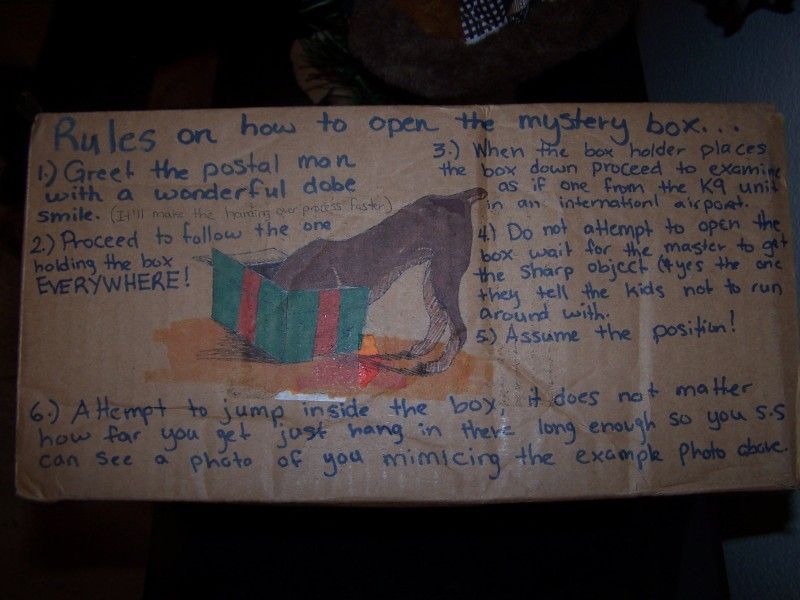 Rules on how to open the mystery box...
1.) Greet the postal man
with a wonderful dobe
smile. (It'll make the handing over process faster)
2.) Proceed to follow the one
holding the box
EVERYWHERE!
3.) When the box holder places
the box down proceed to examine
as if one from the K9 unit
in an internationl airport.
4.) Do not attempt to open the
box wait for the master to get
the sharp object (& yes the one
they tell the kids not to run
around with.
5.) Assume the position!
6.) Attempt to jump inside the box, it does not matter
how far you get just hang in there long enough so you s.s
can see a photo of you mimicing the example photo above.